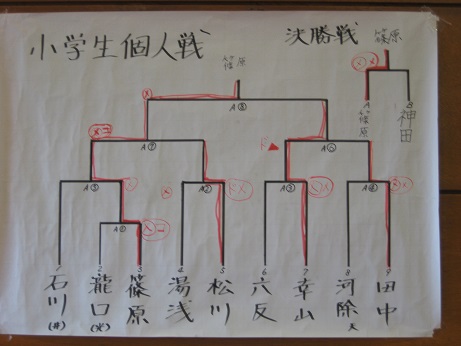 小学生個人戦
決勝戦
篠原
篠原
メメ
A 篠原
B 神田
A⑧
A⑦
A⑤
A②
A③
A④
A①
1 石川(井)
2 瀧口(光)
3 篠原
4 湯浅
5 松川
6 六反
7 幸山
8 河除
9 田中